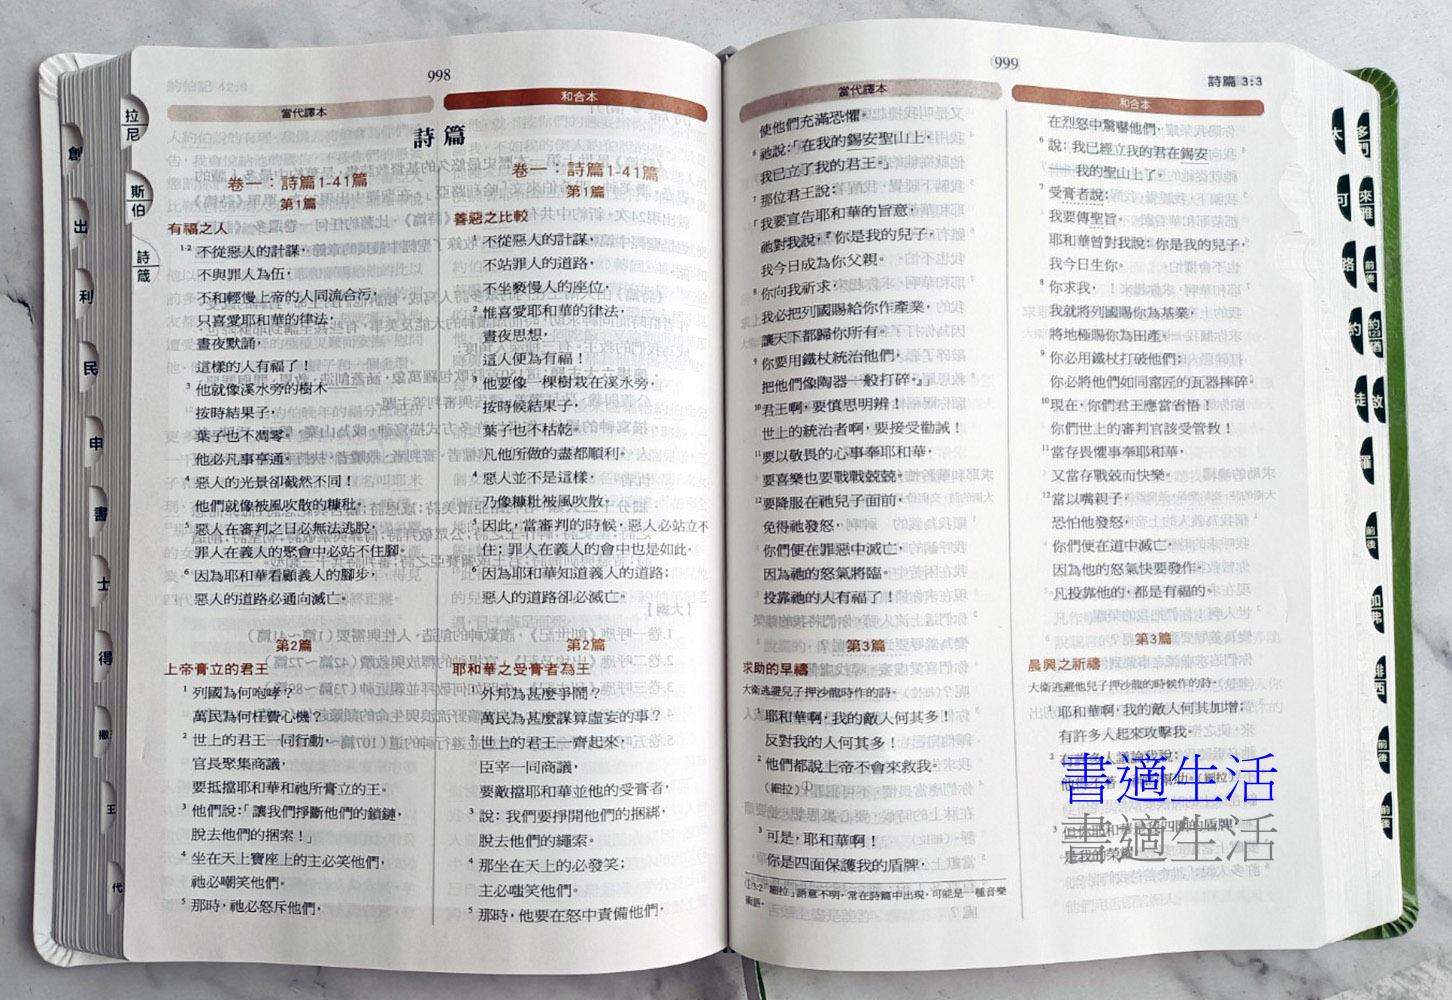 998
當代譯本
和合本
詩篇
卷一：詩篇1-41篇
第1篇
有福之人
1-2 不從惡人的計謀，
不與罪人為伍，
不和輕慢上帝的人同流合污，
只喜愛耶和華的律法，
晝夜默誦，
這樣的人有福了！
3 他就像溪水旁的樹木
按時結果子，
葉子也不凋零。
他必凡事亨通。
4 惡人的光景卻截然不同！
他們就像被風吹散的糠秕。
5 惡人在審判之日必無法逃脫，
罪人在義人的聚會中必站不住腳。
6 因為耶和華看顧義人的腳步，
惡人的道路必通向滅亡。
第2篇
上帝膏立的君王
1 列國為何咆哮？
萬民為何枉費心機？
2 世上的君王一同行動，
官長聚集商議，
要抵擋耶和華和祂所膏立的王。
3 他們說：「讓我們掙斷他們的鎖鏈，
脫去他們的捆索！」
4 坐在天上寶座上的主必笑他們，
祂必嘲笑他們。
5 那時，祂必怒斥他們，
卷一：詩篇1-41篇
第1篇
善惡之比較
不從惡人的計謀，
不站罪人的道路，
不坐褻慢人的座位，
2 惟喜愛耶和華的律法，
晝夜思想，
這人便為有福！
3 他要像一棵樹栽在溪水旁，
按時候結果子，
葉子也不枯乾。
凡他所做的盡都順利。
4 惡人並不是這樣，
乃像糠秕被風吹散。
5 因此，當審判的時候，惡人必站立不
住；罪人在義人的會中也是如此。
6 因為耶和華知道義人的道路；
惡人的道路卻必滅亡。
第2篇
耶和華之受膏者為王
1 外邦為甚麼爭鬧？
萬民為甚麼謀算虛妄的事？
2 世上的君王一齊起來，
臣宰一同商議，
要敵擋耶和華並他的受膏者，
3 說：我們要掙開他們的捆綁，
脫去他們的繩索。
4 那坐在天上的必發笑；
主必嗤笑他們。
5 那時，他要在怒中責備他們，
999
詩篇 3:3
當代譯本
和合本
使他們充滿恐懼。
6 祂說：「在我的錫安聖山上，
我已立了我的君王。」
7 那位君王說：
「我要宣告耶和華的旨意。
祂對我說，『你是我的兒子，
我今日成為你父親。
8 你向我祈求，
我必把列國賜給你作產業，
讓天下都歸你所有。
9 你要用鐵杖統治他們，
把他們像陶器一般打碎。』」
10 君王啊，要慎思明辨！
世上的統治者啊，要接受勸誡！
11 要以敬畏的心事奉耶和華，
要喜樂也要戰戰兢兢。
12 要降服在祂兒子面前，
免得祂發怒，
你們便在罪惡中滅亡，
因為祂的怒氣將臨。
投靠祂的人有福了！
第3篇
求助的早禱
大衛逃避兒子押沙龍時作的詩。
1 耶和華啊，我的敵人何其多！
反對我的人何其多！
2 他們都說上帝不會來救我。
（細拉）①
3 可是，耶和華啊！
你是四面保護我的盾牌，
①3:2 「細拉」語意不明，常在詩篇中出現，可能是一種音樂
術語。
在烈怒中驚嚇他們，
6 說：我已經立我的君在錫安
我的聖山上了。
7 受膏者說：
我要傳聖旨。
耶和華曾對我說：你是我的兒子，
我今日生你。
8 你求我，
我就將列國賜你為基業，
將地極賜你為田產。
9 你必用鐵杖打破他們；
你必將他們如同窰匠的瓦器摔碎。
10 現在，你們君王應當省悟！
你們世上的審判官該受管教！
11 當存畏懼事奉耶和華，
又當存戰兢而快樂。
12 當以嘴親子，
恐怕他發怒，
你們便在道中滅亡，
因為他的怒氣快要發作。
凡投靠他的，都是有福的。
第3篇
晨興之祈禱
大衛逃避他兒子押沙龍的時候作的詩。
1 耶和華啊，我的敵人何其加增；
有許多人起來攻擊我。
2 有許多人議論我說：
3 但你耶和華是我四圍的盾牌，
是我的榮耀，
書適生活
書適生活
拉尼
斯伯
詩箴
創
出
利
民
申
書
士
得
撒
王
代
太
多門
可
來雅
路
前後
約
徒
啟
羅
前後
加弗
腓西
前後